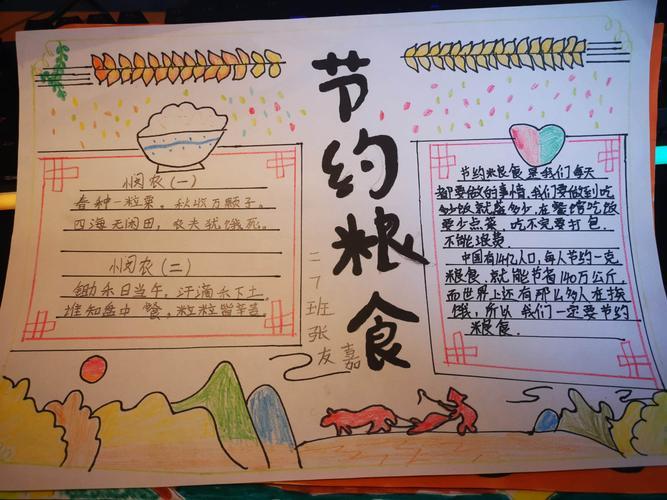 节约粮食
悯农(一)
春种一粒粟。秋收万颗子。
四海无闲田,农夫犹饿死。
悯农(二)
锄禾日当午,汗滴禾下土。
谁知盘中餐。粒粒皆辛苦。
二7班张友嘉
节约粮食是我们每天
都要做的事情,我们要做到吃
多少饭就盛多少,在餐馆吃饭
要少点菜,吃不完要打包,
不能浪费.
中国有14亿人口,每人节约一克
粮食,就能节省140万公斤,
而世界上还有那么多人在挨
饿,所以我们一定要节约
粮食.